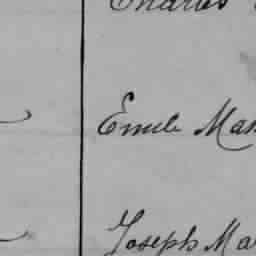 Charles
Emile Mar
Joseph Mar